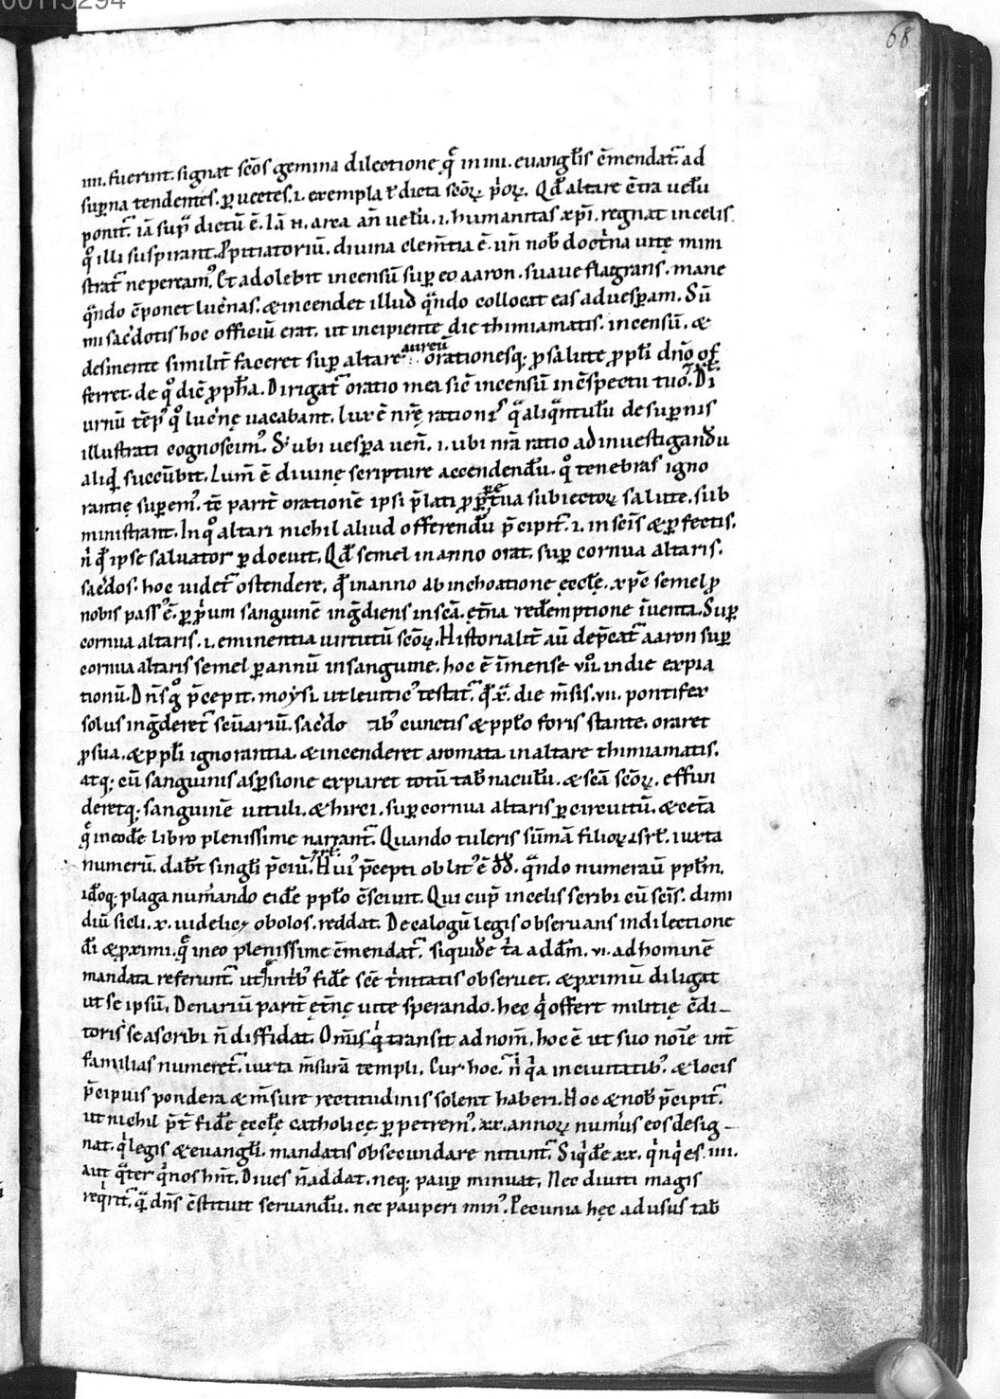 00115294
68
iiii. fuerint. signat scōs gemina dilectione q̄ in iiii. evangl̄is c̄mendat᷑ ad
sup̱na tendentes. ꝑ vectes .i. exempla ł dicta scōꝝ p̄orꝝ. Qd̄ altare c̄tra velū
ponit᷑ iā sup̄ dictū ē. Iā n̄. area an̄ velū .i. humanitas xp̄i. regnat in celis
q̊ illi suspirant. Ꝓpitiatoriū. divina clem̄tia ē. un̄ nob̄ doct̄na vitę mini
strat᷑ ne pereamꝰ. Et adolebit incensū sup̱ eo aaron. suave flagrans. mane
q̄ndo c̄ponet lucn̄as. & incendet illud q̄ndo collocat eas ad vesp̱am. Sū
mi sac̄dotis hoc officiū erat. ut incipiente die thimiamatis. incensū. &
desinente similit̄ faceret sup̱ altare aureū orationesq; ꝓ salute ꝓ pp̄li dn̄o of
ferret. de q̊ dic̄ ꝓph̄a. Dirigat᷑ oratio mea sic̄ incensū in c̄spectu tuo. Di
urnū tēp̱ꝰ q̊ lucn̄ę vacabant. Lux ē nr̄ę rationis q̄ aliq̄ntulū de sup̱nis
illustrati cognoscimꝰ. Sⁱ ubi vesp̱a ven̄ .i. ubi nr̄a ratio ad investigandū
aliq̄d succūbit. Lum̄ ē divinę scripture accendendū. q̊ tenebras igno
rantię sup̱emꝰ. tē parit̄ orationē ipsi p̄lati ꝓ ꝓpria subiectoꝝ salute. sub
ministrant. In q̊ altari nichil aliud offerendū p̄cipit᷑ .i. in scīs & ꝑfectis.
n̄ qd̄ ipse salvator ꝑdocuit. Qd̄ semel in anno orat. sup̱ cornua altaris.
sac̄dos. hoc videt᷑ ostendere. qd̄ in anno ab inchoatione ęccłę. xp̄c semel ꝓ
nobis passꝰ ē. ꝑ ꝓprium sanguinē ingr̄diens in scā. ęt̄na redēmptione īventa. Sup̱
cornua altaris .i. eminentia virtutū scōꝝ. Historialit̄ aū dep̄cat᷑ aaron sup̱
cornua altaris semel ꝑ annū in sanguine. hoc ē ī mense vii̊. in die expia
tionū. Dn̄s q̊ p̄cepit. moysi. ut leviticꝰ testat᷑. qd̄ .x. die m̄sis .vii. pontifex
solus ingr̄deret᷑ scūariū. sac̄do abꝰ cunctis & pp̄lo foris stante. oraret
ꝓ sua. & pp̄li ignorantia. & incenderet aromata in altare thimiamatis.
atq; cū sanguinis asp̱sione expiaret totū tab̄naculū. & scā scōꝝ. effun
deretq; sanguinē vituli. & hirci. sup̱ cornua altaris ꝑ circuitū. & cet̄a
q̄ in eodē libro plenissime narrant᷑. Quando tuleris sūmā filioꝝ isrł. iuxta
numerū. dab̄t singl̄i p̄ciū. Huiꝰ p̄cepti oblitꝰ ē dd̄. q̄ndo numeraū pp̄lm.
idc̄oq; plaga num̄ando eidē pp̄lo c̄scivit. Qui cup̱ in celis scribi cū scīs. dimi
diū sicli .x. videlicꝫ obolos. reddat. Decalogū legis observans in dilectione
dī & ꝓximi. q̄ in eo plenissime c̄mendat᷑. siquidē tr̄a ad dm̄ .vi. ad hominē
mandata referunt᷑. ut fidē scē t̄nitatis observet. & ꝓximū diligat
ut se ipsū. Denariū parit̄ ęt̄nę vitę sperando. hec qⁱ offert militię c̄di
toris se ascribi n̄ diffidat. Om̄is qⁱ transit ad nom̄. hoc ē ut suo noīe int̄
familias numeret᷑. iuxta m̄surā templi. Cur hoc. n̄ qⁱa in civitatibꝰ. & locis
p̄cipuis pondera & m̄sure rectitudinis solent haberi. Hoc & nob̄ p̄cipit᷑.
ut nichil p̄t̄ fidē ęccłę catholicę. ꝑpetremꝰ .xx. annoꝝ num̄us eos desig
nat. qⁱ legis & evangl̄ii. mandatis obsecundare nitunt᷑. Siq̄dē xx. qⁱnqⁱes .iiii.
aut q̄ter qⁱnos hn̄t. Dives n̄ addat. neq; paup̱ minuat. Nec diviti magis
reqⁱrit᷑. q̄ dn̄s c̄stituit servandū. nec pauperi minꝰ. Pecunia hęc ad usus tab̄